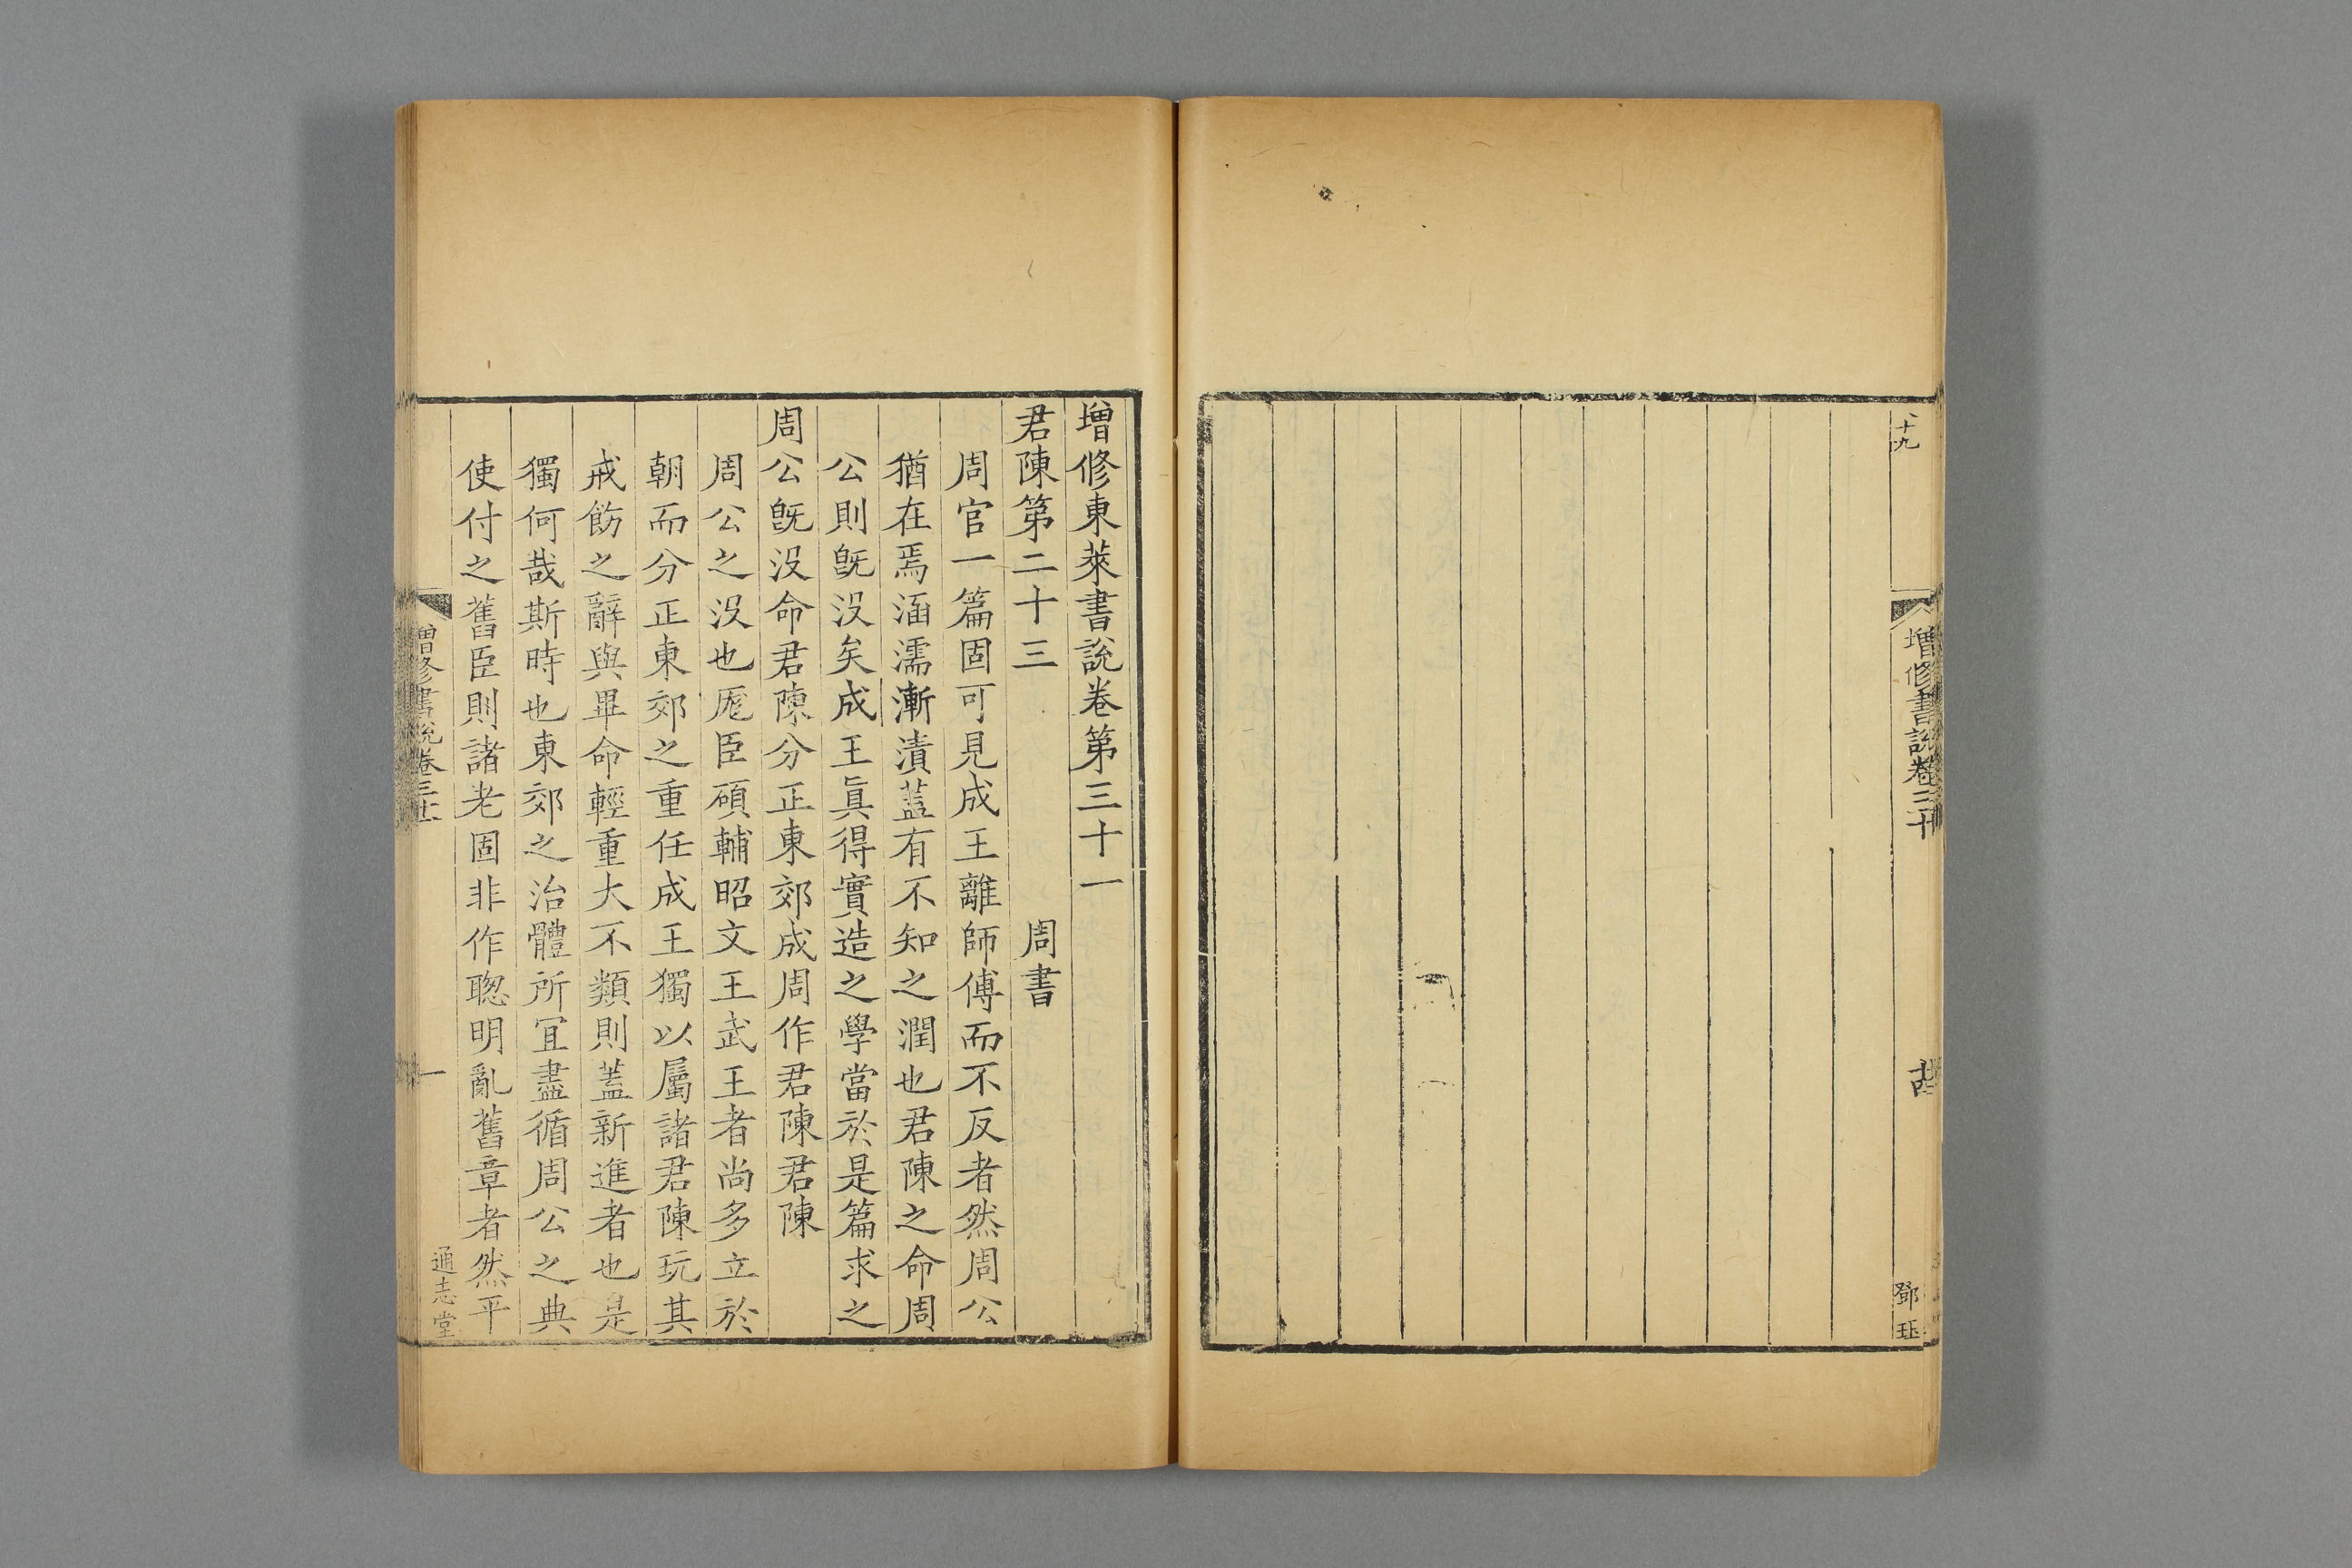 十九
増修書說卷三十
鄧珏
増修東萊書說卷第三十一
君陳第二十三 周書
周官一篇固可見成王離師傅而不反者然周公
猶在焉涵濡漸漬蓋有不知之潤也君陳之命周
公則旣没矣成王眞得實造之學當於是篇求之
周公旣没命君陳分正東郊成周作君陳君陳
周公之没也厖臣碩輔昭文王武王者尚多立於
朝而分正東郊之重任成王獨以屬諸君陳玩其
戒飭之辭與畢命輕重大不類則蓋新進者也是
獨何哉斯時也東郊之治體所宜盡循周公之典
使付之舊臣則諸老固非作聦明亂舊章者然平
増修書說卷三十一
一
通志堂